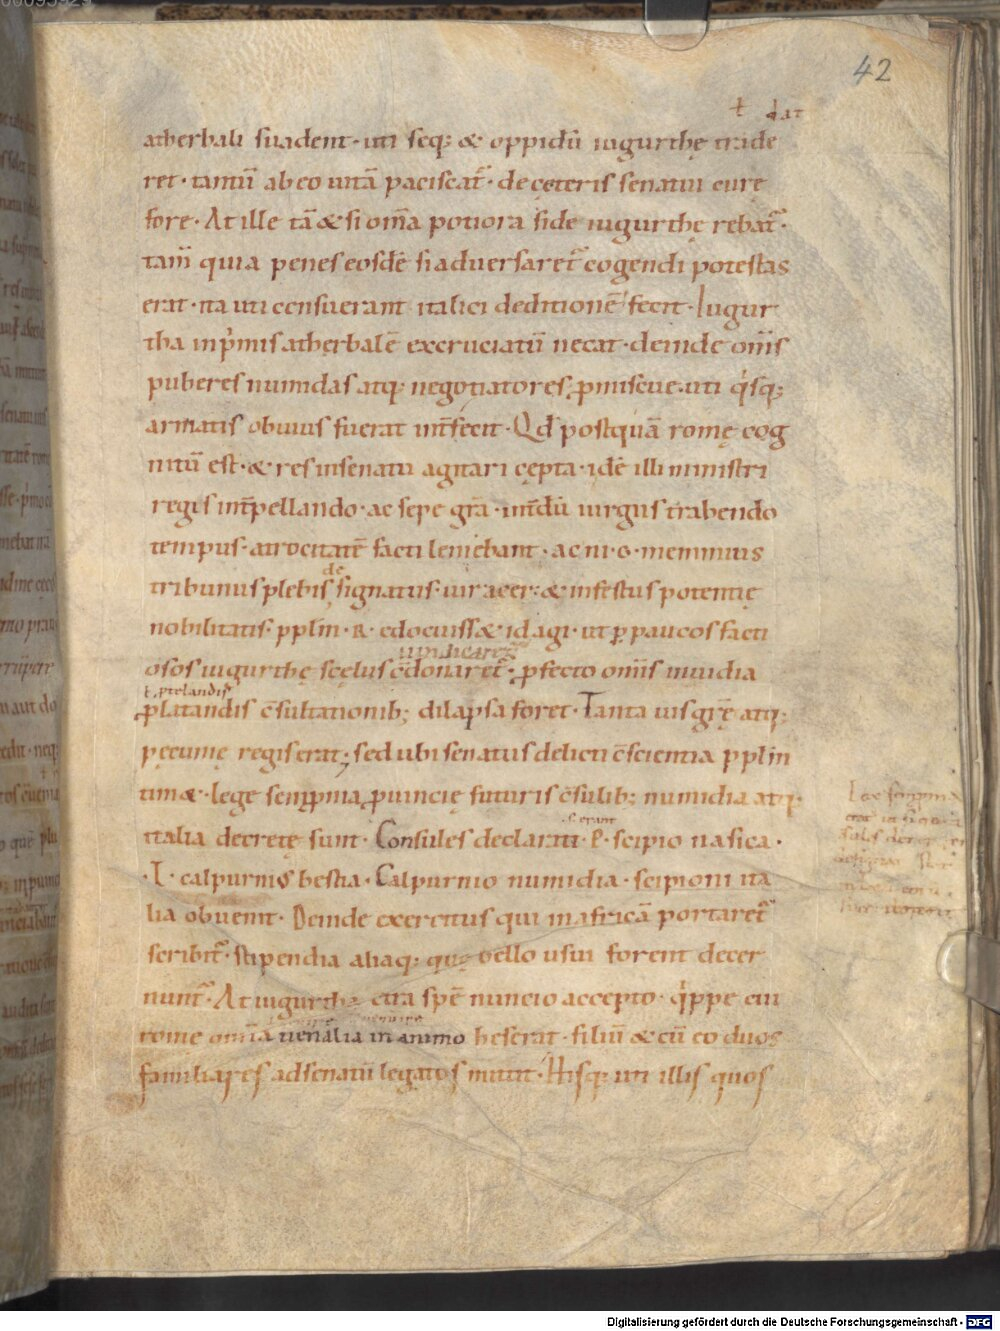 42
ł dat
atherbali suadent · uti seq; & oppidū iugurthę trade
ret · tantū ab eo uitā paciscat̄ · de cęteris senatui curę
fore · At ille tā & si om̄a potiora fide iugurthę rebat̄ ·
tam̄ quia penes eosdē si aduersaret̄ cogendi potestas
erat · ita uti censuerant italici deditionē fecit · Iugur
tha inp̍mis atherbalē excruciatū necat · deinde om̄is
puberes numidas atq; negotiatores ꝓmiscue · uti q̍sq;
armatis obuius fuerat int̄fecit · Qd̄ postquā romę cog
nitū est · & res in senatu agitari cępta · idē illi ministri
regis int̄pellando · ac sepe gr̄a · int̄dū iurgiis trahendo
tempus · atrocitatē facti leniebant · ac ni · G · memmius
de
tribunus plebis signatus · uir acer · & infestus potentię
nobilitatis · p pl̄m · R · edocuiss& id agi · ut ꝑ paucos facti
uindicaret̄
osos iugurthę scęlus c̄donaret̄ · ꝓfecto om̄is inuidia
ł ꝓtelandis
ꝓlatandis c̄sultationib; dilapsa foret · Tanta uis grę̄ atq;
pęcunię regis erat; sed ubi senatus delicti c̄scientia p pl̄m
tim& · lege semꝓnia ꝓuincię futuris c̄sulib; numidia atq;
italia decretę sunt · Consules declarati · P · scipio nasica ·
s · erant
· L · calpurnius bestia · Calpurnio numidia · scipioni ita
lia obuenit · Deinde exercitus qui in africā portaret̄
scribit̄ · stipendia aliaq; quę bello usui forent decer
nunt̄ · At iugurtha c̄tra spē nuncio accepto · q̍ppe cui
romę omīa uenalia in animo heserat · filiū & cū eo duos
familiares ad senatū legatos mittit · Hisq; uti illis quos
Digitalisierung gefördert durch die Deutsche Forschungsgemeinschaft - DFG